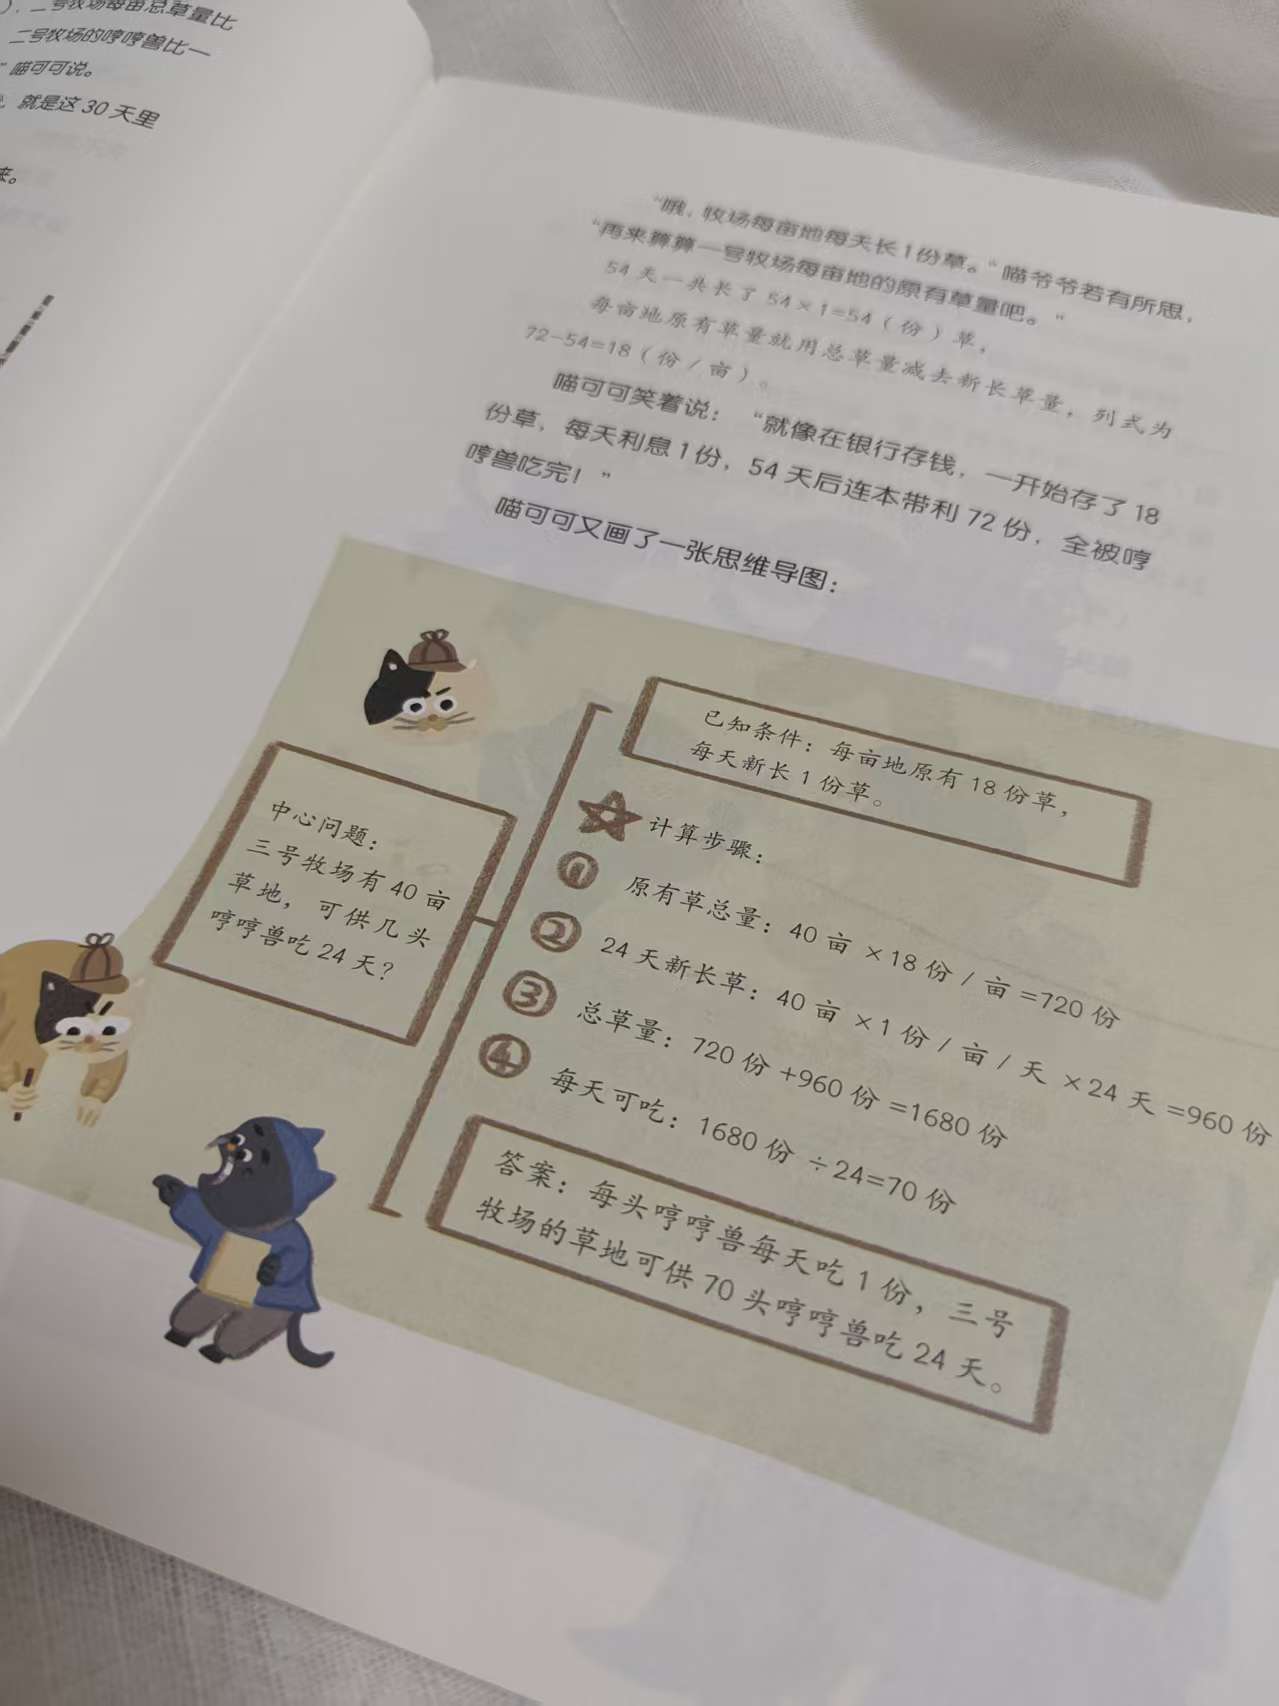 二号牧场每亩总草量比
二号牧场的哼哼兽比一
”喵可可说。
就是这 30 天里
来。
“哦，牧场每亩地每天长 1 份草。”喵爷爷若有所思，
“再来算算一号牧场每亩地的原有草量吧。”
54 天一共长了 54×1=54（份）草，
每亩地原有草量就用总草量减去新长草量，列式为
72-54=18（份/亩）。
喵可可笑着说：“就像在银行存钱，一开始存了 18
份草，每天利息 1 份，54 天后连本带利 72 份，全被哼
哼兽吃完！”
喵可可又画了一张思维导图：
中心问题：
三号牧场有 40 亩
草地，可供几头
哼哼兽吃 24 天？
已知条件：每亩地原有 18 份草，
每天新长 1 份草。
计算步骤：
① 原有草总量：40 亩 ×18 份/亩 =720 份
② 24 天新长草：40 亩 ×1 份/亩/天 ×24 天 =960 份
③ 总草量：720 份 +960 份 =1680 份
④ 每天可吃：1680 份 ÷24=70 份
答案：每头哼哼兽每天吃 1 份，三号
牧场的草地可供 70 头哼哼兽吃 24 天。